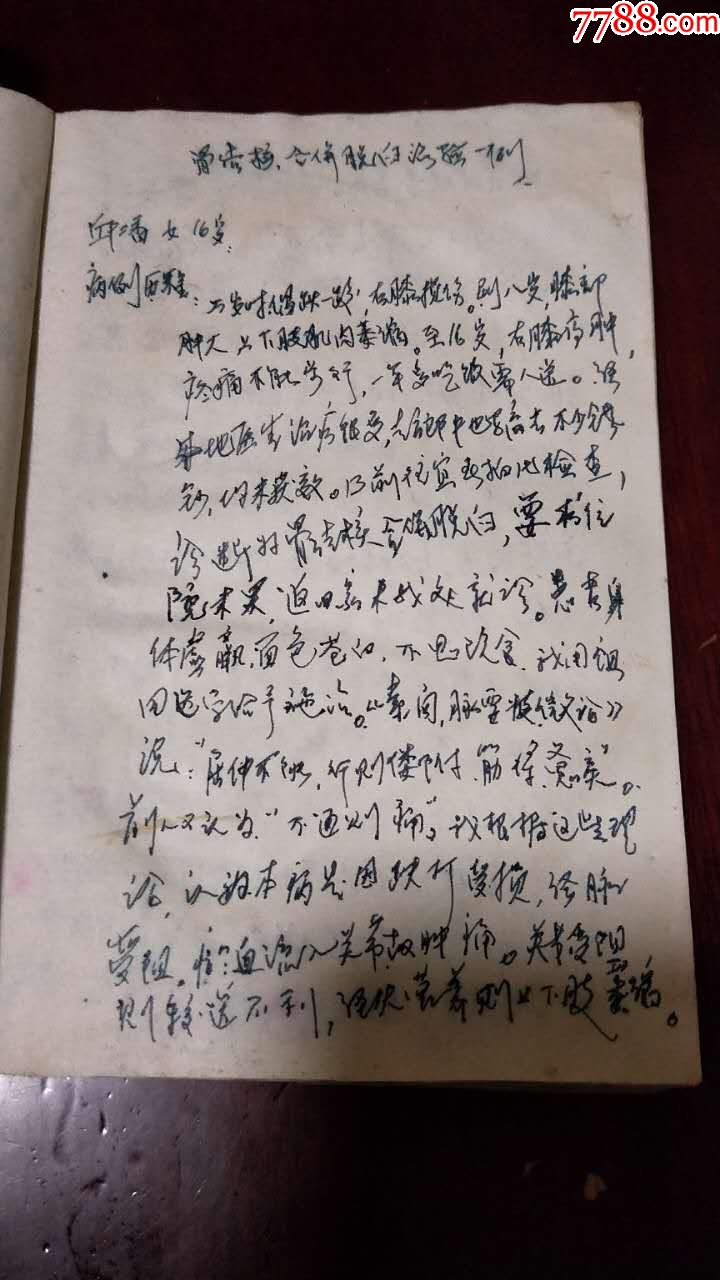 7788.com
骨结核合併脱臼治验一例
邱 女 16岁:
病例 :五岁时 跌一跤,右膝损伤。到八岁,膝部
肿大 下肢肌肉萎 。至16岁,右膝 肿,
疼痛不能步行,一年多吃饭需人送。经
当地医生治疗 ,去 不少钱
钞,均未获效。 前往宜 拍片检查,
诊断为骨结核合併脱臼,要求住
院未果,返回 来我处就诊。患者身
体虚羸,面色苍白,不思饮食,我用
施治。《素问,脉要精微论》
说:"屈伸不能,行则偻附,筋将惫矣"。
前人又认为"不通则痛"。我根据这些理
论,认为本病是因跌打受损,经脉
受阻。 血流入关节故肿痛。 受阻
则 送不利,经 营养则 下肢萎 。